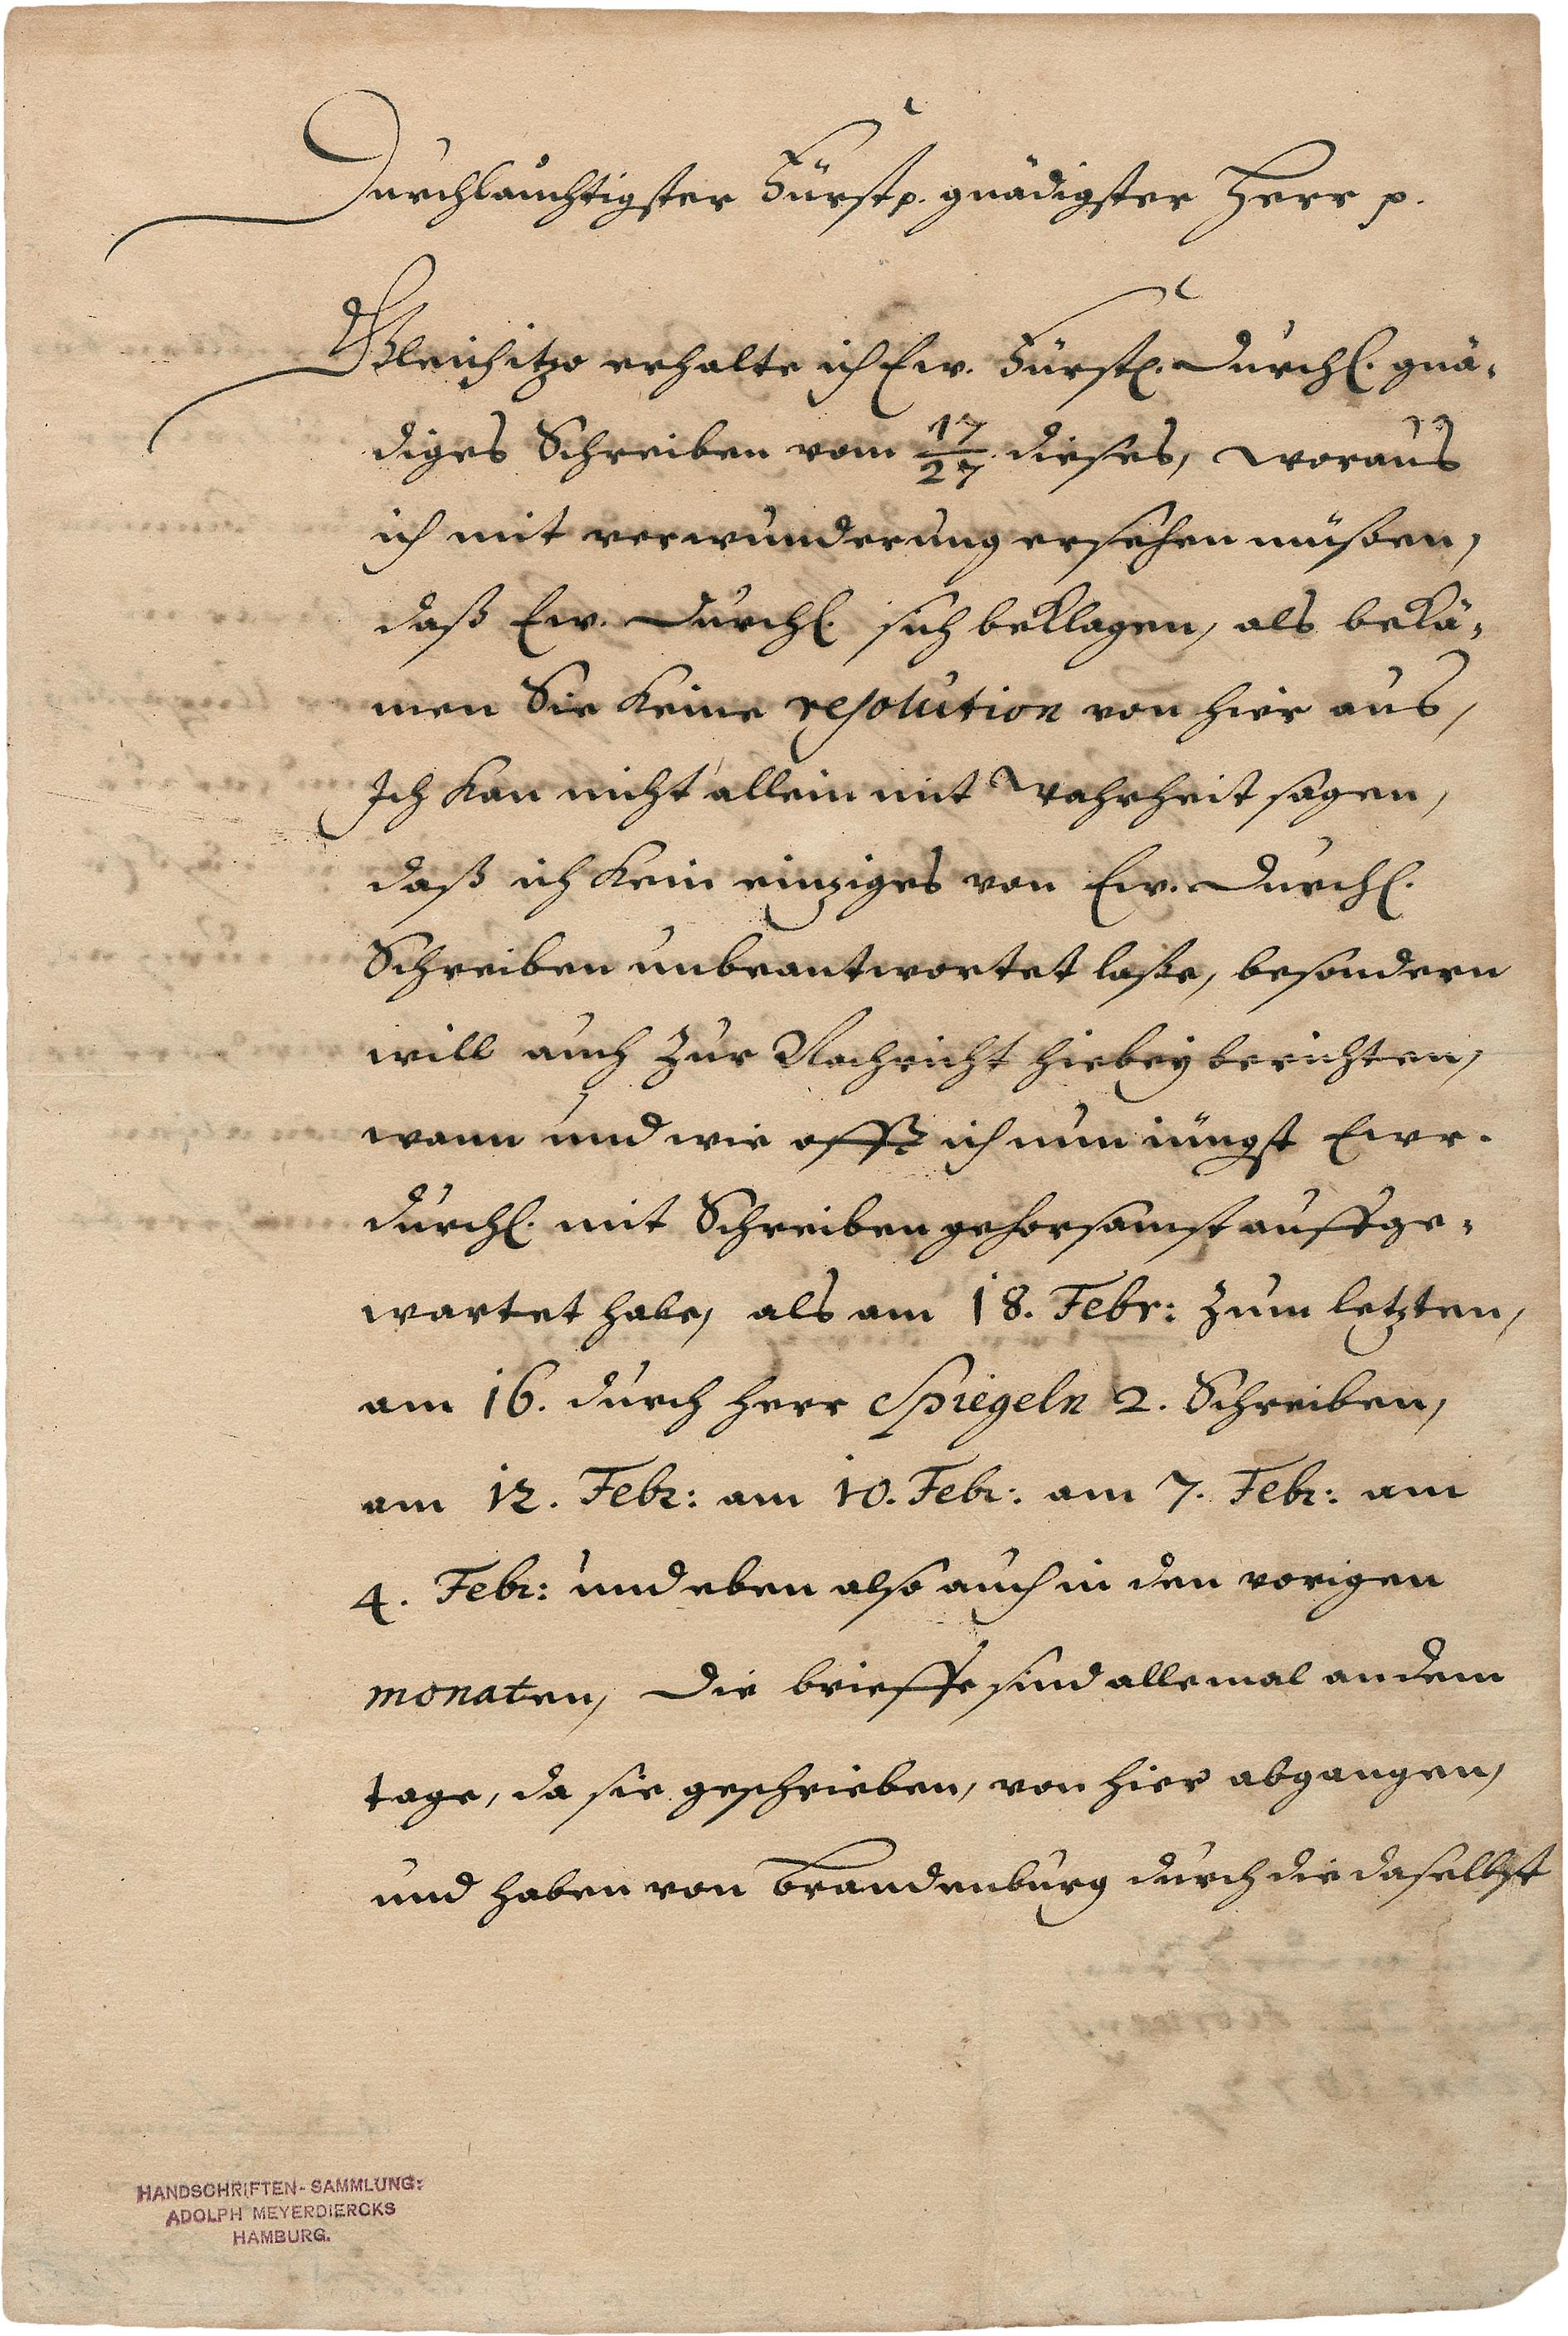 Durchläuchtigster Fürst p. gnädigster Herr p.
Gleich itzo erhalte ich Ew. Fürstl. Durchl. gnä-
diges Schreiben vom 17/27. dieses, woraus
ich mit verwunderung ersehen müßen,
daß Ew. Durchl. sich beklagen, als bekä-
men Sie keine resolution von hier aus,
Ich kan nicht allein mit Wahrheit sagen,
daß ich kein einziges von Ew. Durchl.
Schreiben unbeantwortet laße, besondern
will auch zur Nachricht hiebey berichten,
wann und wie offt ich nun iüngst Ewr.
durchl. mit Schreiben gehorsamst auffge-
wartet habe, als am 18. Febr: zum letzten,
am 16. durch herr Spiegeln 2. Schreiben,
am 12. Febr: am 10. Febr: am 7. Febr: am
4. Febr: und eben also auch in den vorigen
monaten, Die brieffe sind allemal an dem
tage, da sie geschrieben, von hier abgangen,
und haben von Brandenburg durch die daselbst
HANDSCHRIFTEN-SAMMLUNG:
ADOLPH MEYERDIERCKS
HAMBURG.